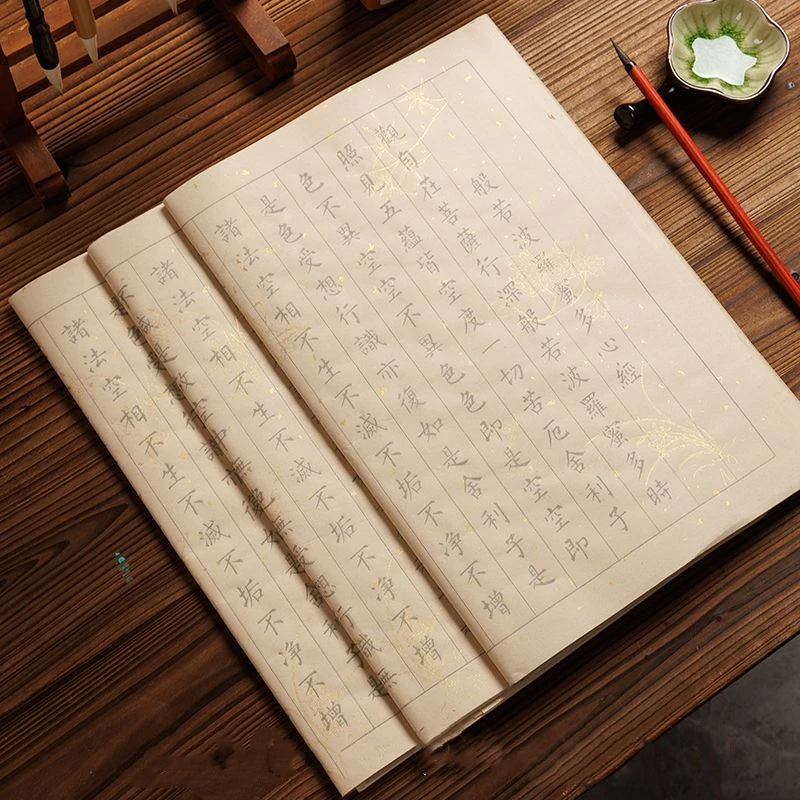 般若波羅蜜多心經
觀自在菩薩行深般若波羅蜜多時
照見五蘊皆空度一切苦厄舍利子
色不異空空不異色色即是空空即
是色受想行識亦復如是舍利子是
諸法空相不生不滅不垢不净不增
諸法空相不生不滅不垢不净不增
不減是故空中無色無受想行識無
諸法空相不生不滅不垢不净不增